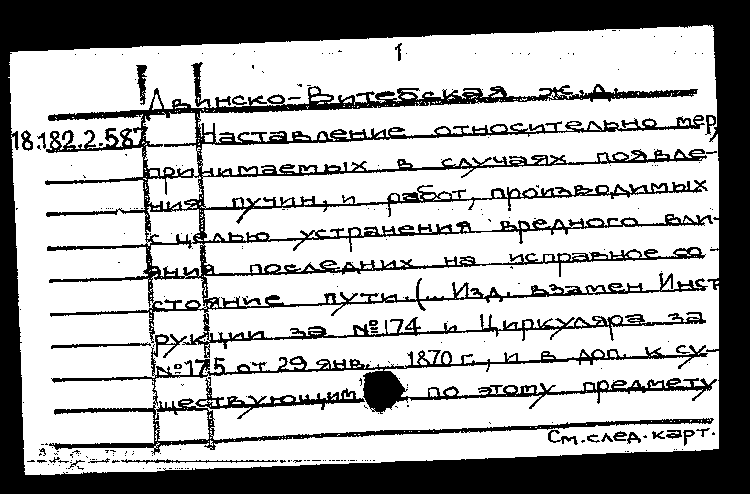 1
Двинско-Витебская ж.д.
18.182.2.587 Наставление относительно мер,
принимаемых в случаях появле-
ния пучин, и работ, производимых
с целью устранения вредного вли-
яния последних на исправное со-
стояние пути. (... Изд. взамен Инст
рукции за №174 и Циркуляра за
№175 от 29 янв. 1870 г., и в доп. к су-
ществующим по этому предмету
См. след. карт.